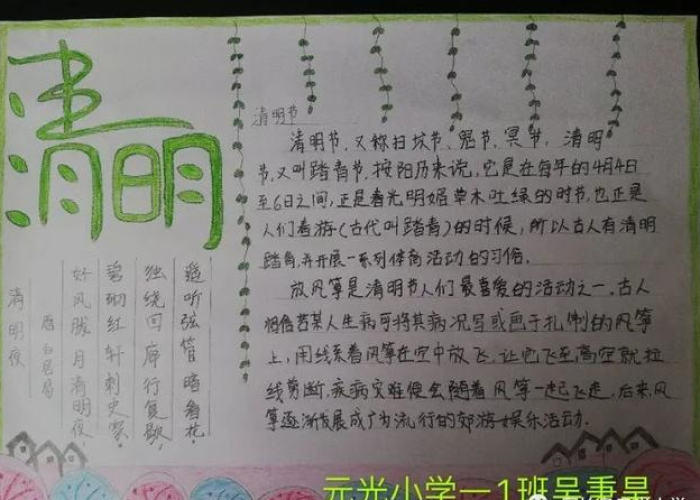 清明
清明夜
唐 白居易
好风胧月清明夜
碧砌红轩刺史家。
独绕回廊行复歇,
遥听弦管暗看花。
清明节
清明节,又称扫坟节、鬼节、冥节,清明
节,又叫踏青节,按阳历来说,它是在每年的4月4日
至6日之间,正是春光明媚草木吐绿的时节,也正是
人们春游(古代叫踏青)的时候,所以古人有清明
踏青,并开展一系列体育活动的习俗。
放风筝是清明节人们最喜爱的活动之一。古人
相信若某人生病可将其病况写或画于扎制的风筝
上,用线系着风筝在空中放飞,让它飞至高空就拉
线剪断,疾病灾难便会随着风筝一起飞走,后来,风
筝逐渐发展成广为流行的郊游娱乐活动。
元光小学一1班吴秉昊